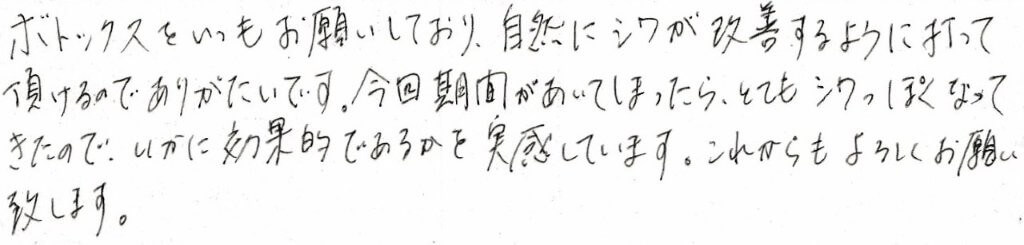 ボトックスをいつもお願いしており、自然にシワが改善するように打って
頂けるのでありがたいです。今回期間があいてしまったら、とてもシワっぽくなって
きたので、いかに効果的であるかを実感しています。これからもよろしくお願い
致します。